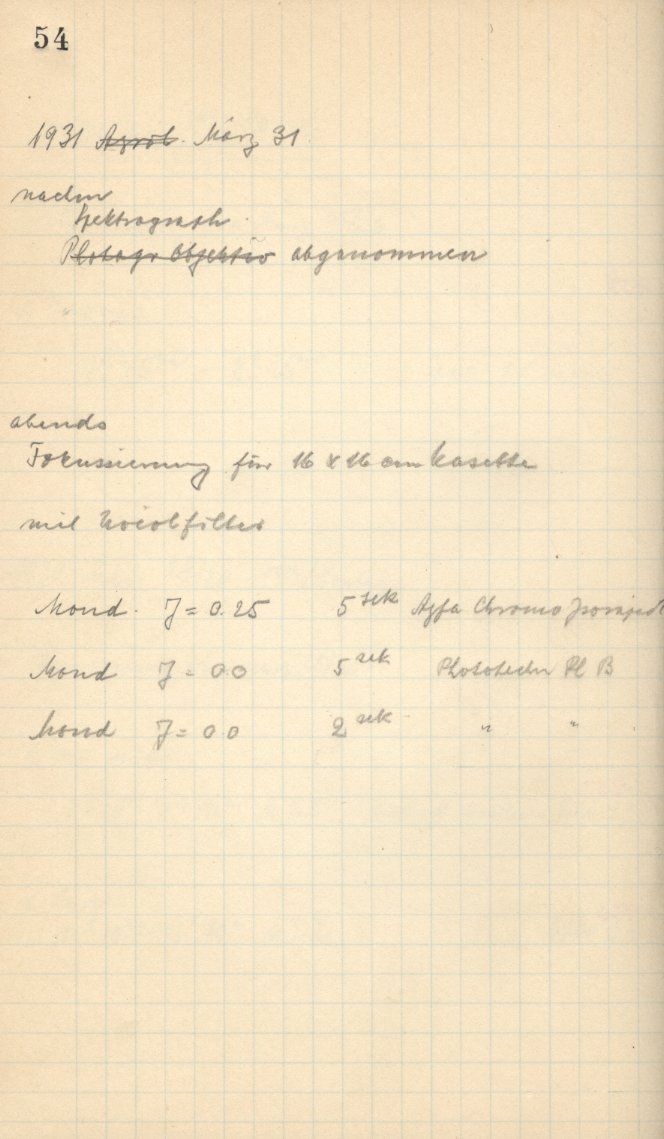 54
1931 April März 31
nachm
Spektrograph
Photogr Objektiv abgenommen
abends
Fokussierung für 16 x 16 cm Kasette
mit Violfilter
Mond. J = 0.25 5 sek Agfa Chromo Isorapid
Mond J = 0.0 5 sek Phototechn Pl B
Mond J = 0.0 2 sek " "